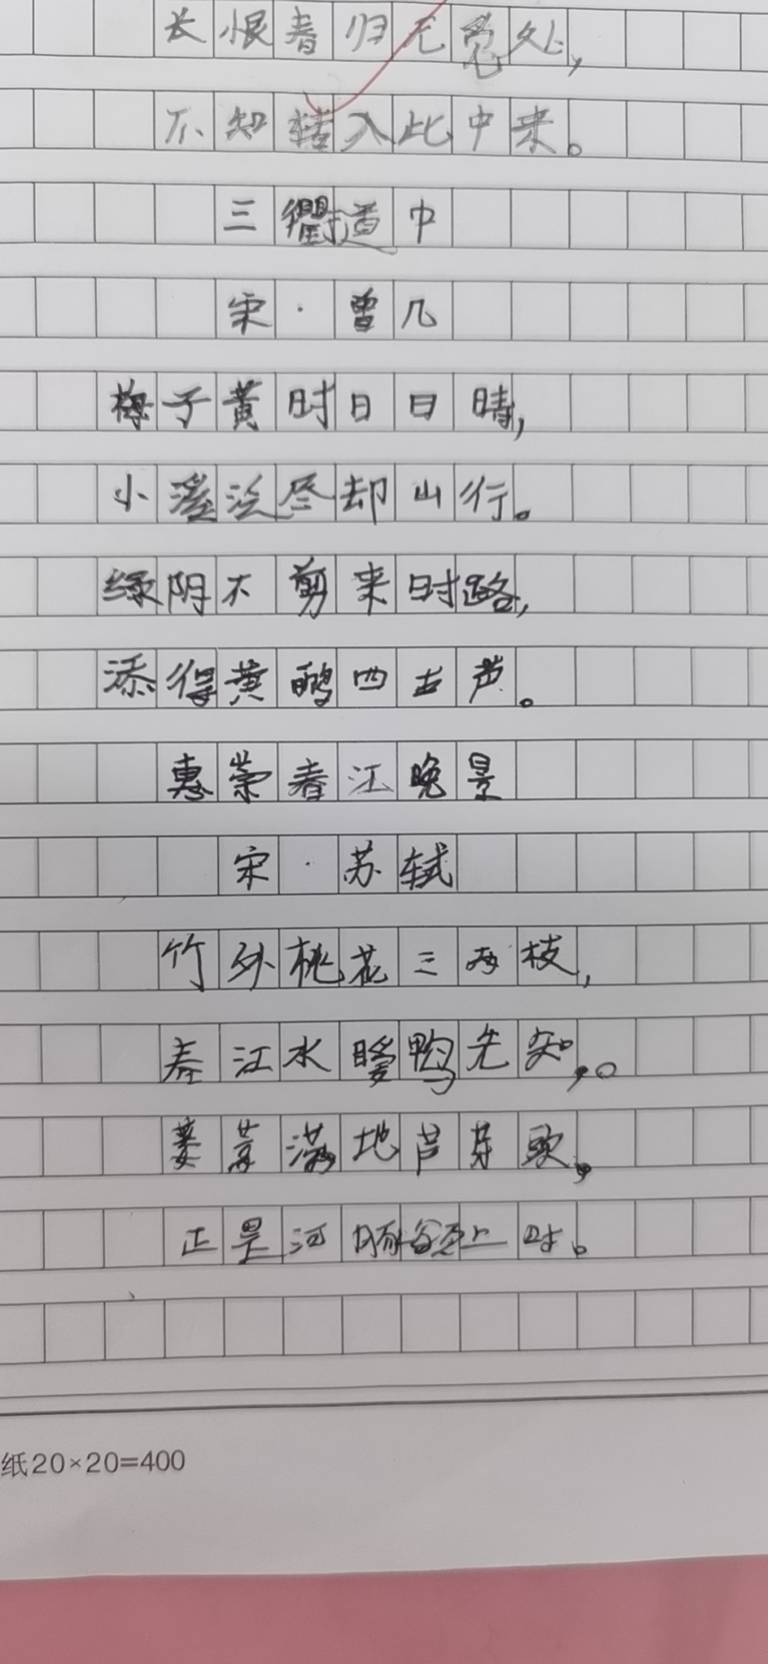 长恨春归无觅处,
不知转入此中来。
三衢道中
宋·曾几
梅子黄时日日晴,
小溪泛尽却山行。
绿阴不剪来时路,
添得黄鹂四五声。
惠崇春江晚景
宋·苏轼
竹外桃花三两枝,
春江水暖鸭先知,。
蒌蒿满地芦芽短,
正是河豚欲上时。
纸20×20=400